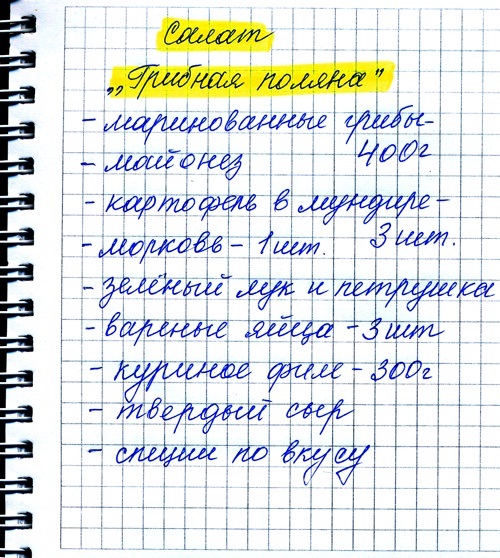 Салат
„Грибная поляна"
- маринованные грибы-
400г
- майонез
- картофель в мундире-
3 шт.
- морковь - 1 шт.
- зелёный лук и петрушка
- вареные яйца - 3 шт
- куриное филе - 300г
- твердый сыр
- специи по вкусу